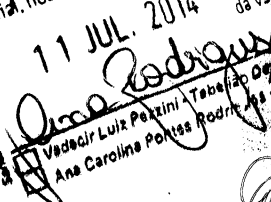 11 JUL. 2014
da
Ana Rodrigues
Vadecir Luiz Pezzini - Tabelião
Ana Carolina Pontes Rodrigues